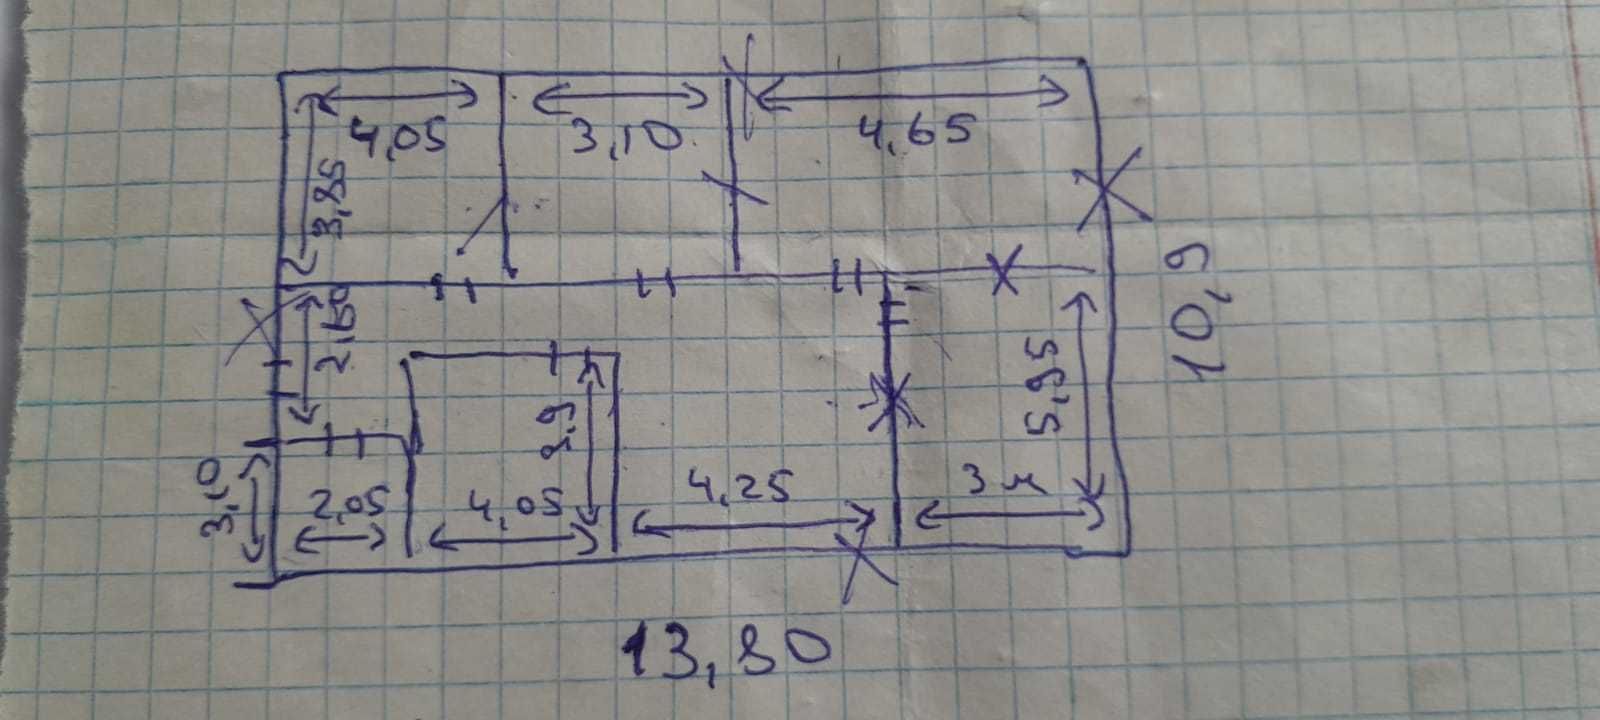 4,05
3,10
4,65
3,85
2,60
10,9
5,95
3,10
2,05
4,05
3,9
4,25
3 м
13,80